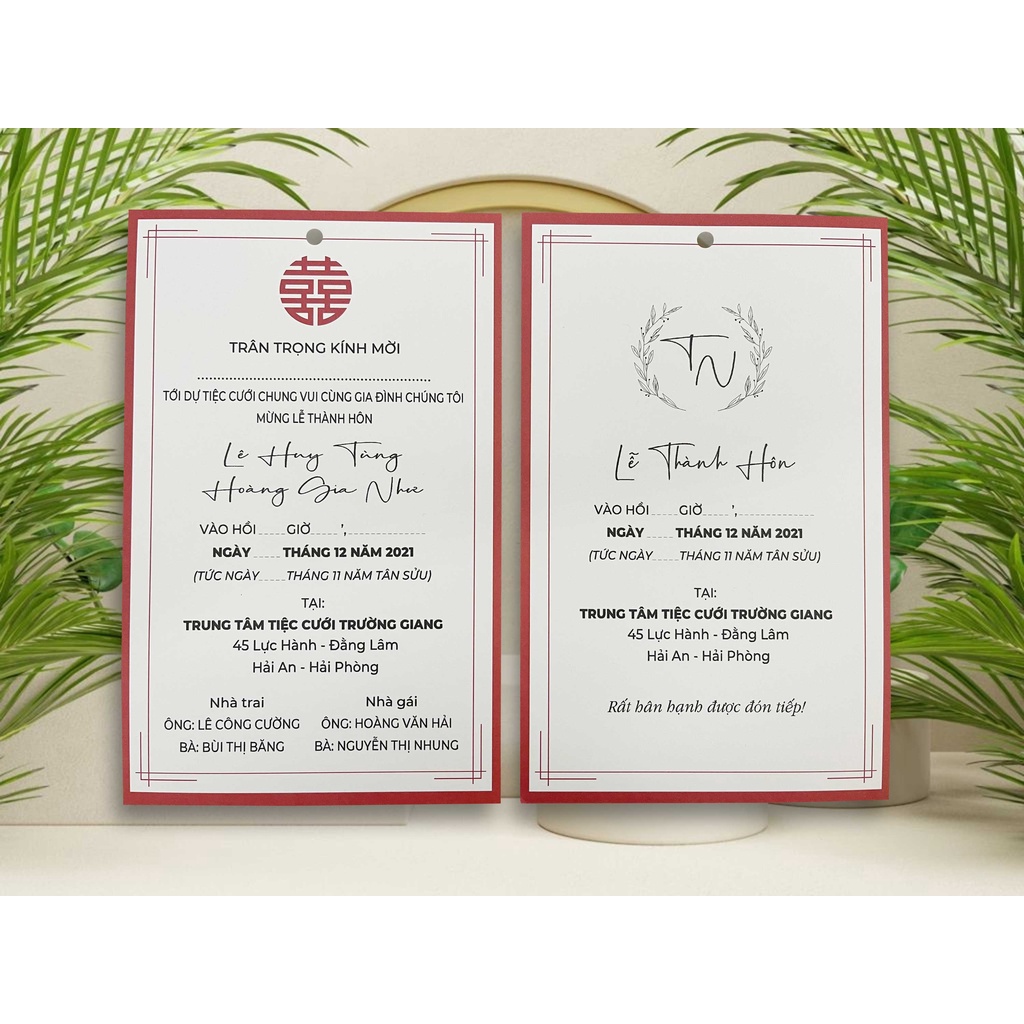 囍
TRÂN TRỌNG KÍNH MỜI
........................................................
TỚI DỰ TIỆC CƯỚI CHUNG VUI CÙNG GIA ĐÌNH CHÚNG TÔI
MỪNG LỄ THÀNH HÔN
Lê Huy Tùng
Hoàng Gia Như
VÀO HỒI_____GIỜ_____',______________
NGÀY_____THÁNG 12 NĂM 2021
(TỨC NGÀY_____THÁNG 11 NĂM TÂN SỬU)
TẠI:
TRUNG TÂM TIỆC CƯỚI TRƯỜNG GIANG
45 Lực Hành - Đằng Lâm
Hải An - Hải Phòng
Nhà trai
ÔNG: LÊ CÔNG CƯỜNG
BÀ: BÙI THỊ BĂNG
Nhà gái
ÔNG: HOÀNG VĂN HẢI
BÀ: NGUYỄN THỊ NHUNG
TN
Lễ Thành Hôn
VÀO HỒI_____GIỜ_____',______________
NGÀY_____THÁNG 12 NĂM 2021
(TỨC NGÀY_____THÁNG 11 NĂM TÂN SỬU)
TẠI:
TRUNG TÂM TIỆC CƯỚI TRƯỜNG GIANG
45 Lực Hành - Đằng Lâm
Hải An - Hải Phòng
Rất hân hạnh được đón tiếp!